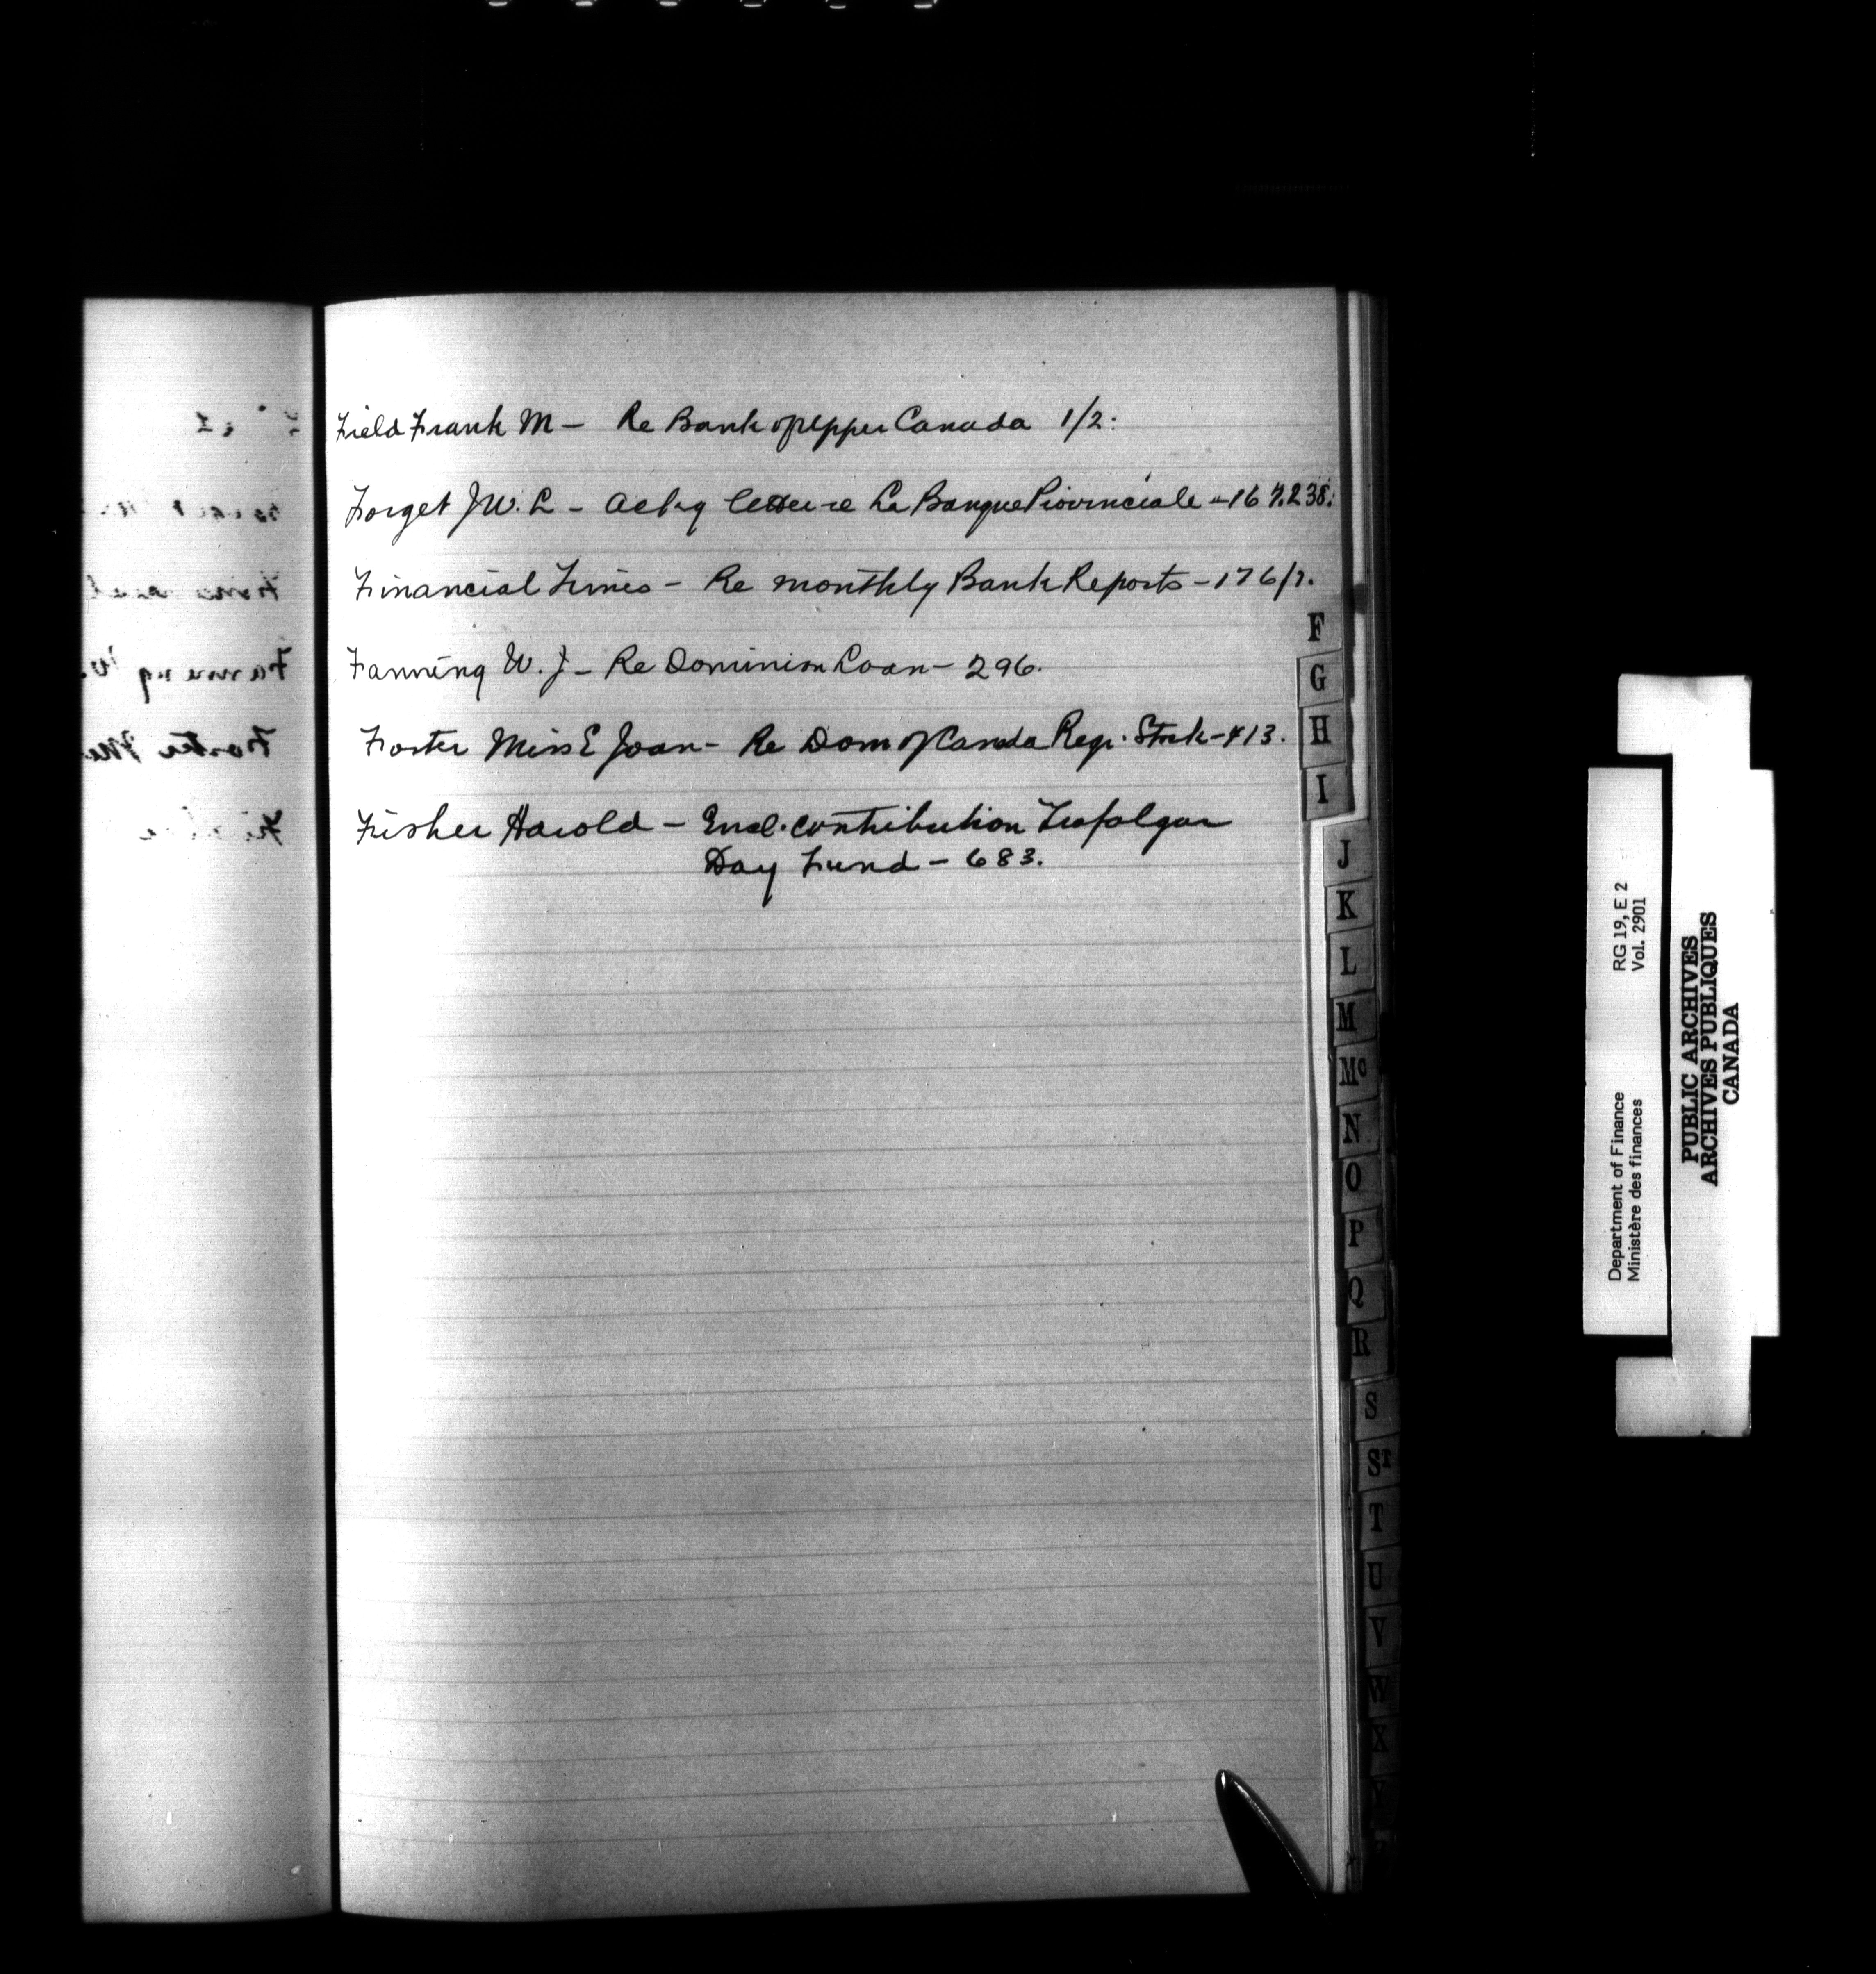 Field Frank M – Re Bank of Upper Canada 1/2:
Forget J.W. L – Ackg letter re La Banque Provinciale – 167.238.
Financial Times – Re monthly Bank Reports – 176/7.
Fanning W. J – Re Dominion Loan – 296.
Foster Miss E Joan – Re Dom of Canada Regr. Stock – 413.
Fisher Harold – Encl. contribution Trafalgar
Day Fund – 683.
F
G
H
I
J
K
L
M
Mc
N
O
P
Q
R
S
ST
T
U
V
W
X
Y
Department of Finance RG 19, E 2
Ministère des finances Vol. 2901
PUBLIC ARCHIVES
ARCHIVES PUBLIQUES
CANADA